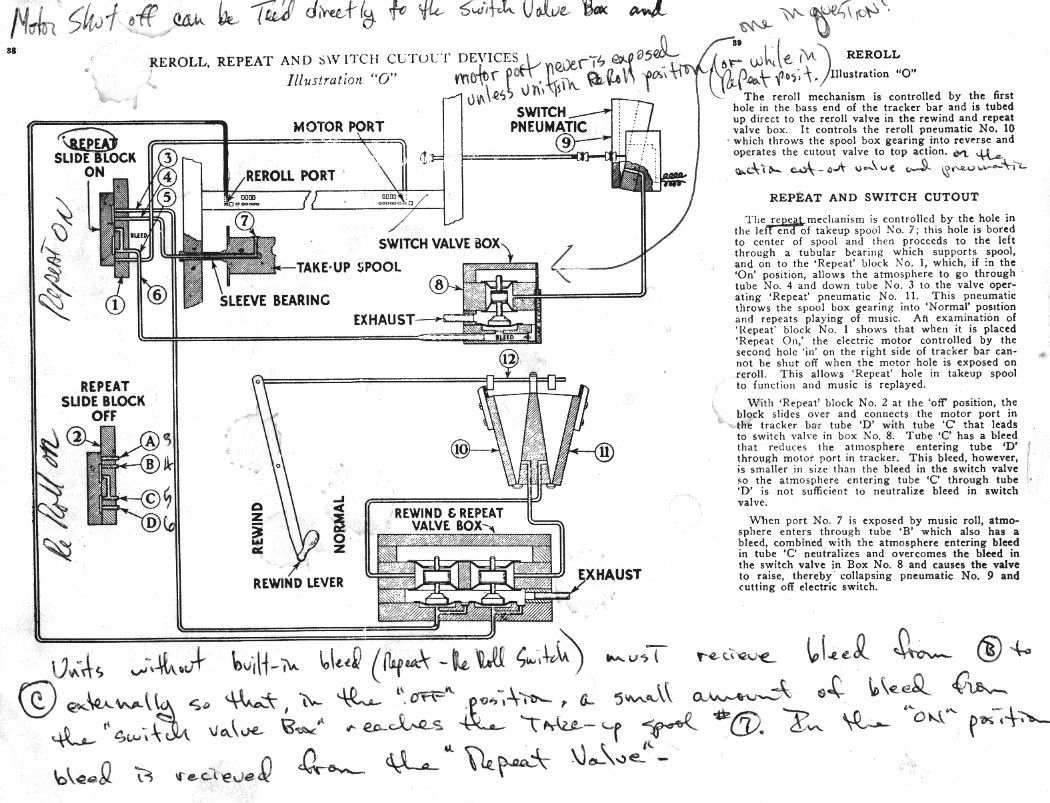 Motor Shut off can be Tee'd directly to the Switch Valve Box and
one in question?
38
REROLL, REPEAT AND SWITCH CUTOUT DEVICES
Illustration "O"
motor port never is exposed
unless unit is in ReRoll position
(or while in
Repeat posit.)
REPEAT
SLIDE BLOCK
ON
MOTOR PORT
SWITCH
PNEUMATIC
9
3
4
5
REROLL PORT
7
BLEED
SWITCH VALVE BOX
TAKE-UP SPOOL
8
1
6
SLEEVE BEARING
EXHAUST
BLEED
Repeat ON
12
REPEAT
SLIDE BLOCK
OFF
2
A 3
B 4
C 5
D 6
Re Roll on
10
11
REWIND
NORMAL
REWIND & REPEAT
VALVE BOX
REWIND LEVER
EXHAUST
39
REROLL
Illustration "O"
The reroll mechanism is controlled by the first
hole in the bass end of the tracker bar and is tubed
up direct to the reroll valve in the rewind and repeat
valve box. It controls the reroll pneumatic No. 10
which throws the spool box gearing into reverse and
operates the cutout valve to top action. or the
action cut-out valve and pneumatic
REPEAT AND SWITCH CUTOUT
The repeat mechanism is controlled by the hole in
the left end of takeup spool No. 7; this hole is bored
to center of spool and then proceeds to the left
through a tubular bearing which supports spool,
and on to the 'Repeat' block No. 1, which, if in the
'On' position, allows the atmosphere to go through
tube No. 4 and down tube No. 3 to the valve oper-
ating 'Repeat' pneumatic No. 11. This pneumatic
throws the spool box gearing into 'Normal' position
and repeats playing of music. An examination of
'Repeat' block No. 1 shows that when it is placed
'Repeat On,' the electric motor controlled by the
second hole 'in' on the right side of tracker bar can-
not be shut off when the motor hole is exposed on
reroll. This allows 'Repeat' hole in takeup spool
to function and music is replayed.
With 'Repeat' block No. 2 at the 'off' position, the
block slides over and connects the motor port in
the tracker bar tube 'D' with tube 'C' that leads
to switch valve in box No. 8. Tube 'C' has a bleed
that reduces the atmosphere entering tube 'D'
through motor port in tracker. This bleed, however,
is smaller in size than the bleed in the switch valve
so the atmosphere entering tube 'C' through tube
'D' is not sufficient to neutralize bleed in switch
valve.
When port No. 7 is exposed by music roll, atmo-
sphere enters through tube 'B' which also has a
bleed, combined with the atmosphere entering bleed
in tube 'C' neutralizes and overcomes the bleed in
the switch valve in Box No. 8 and causes the valve
to raise, thereby collapsing pneumatic No. 9 and
cutting off electric switch.
Units without built-in bleed (Repeat - Re Roll Switch) must recieve bleed from B to
C externally so that, in the "OFF" position, a small amount of bleed from
the "switch valve Box" reaches the TAKE-up spool #7. In the "ON" position
bleed is recieved from the "Repeat Valve" -